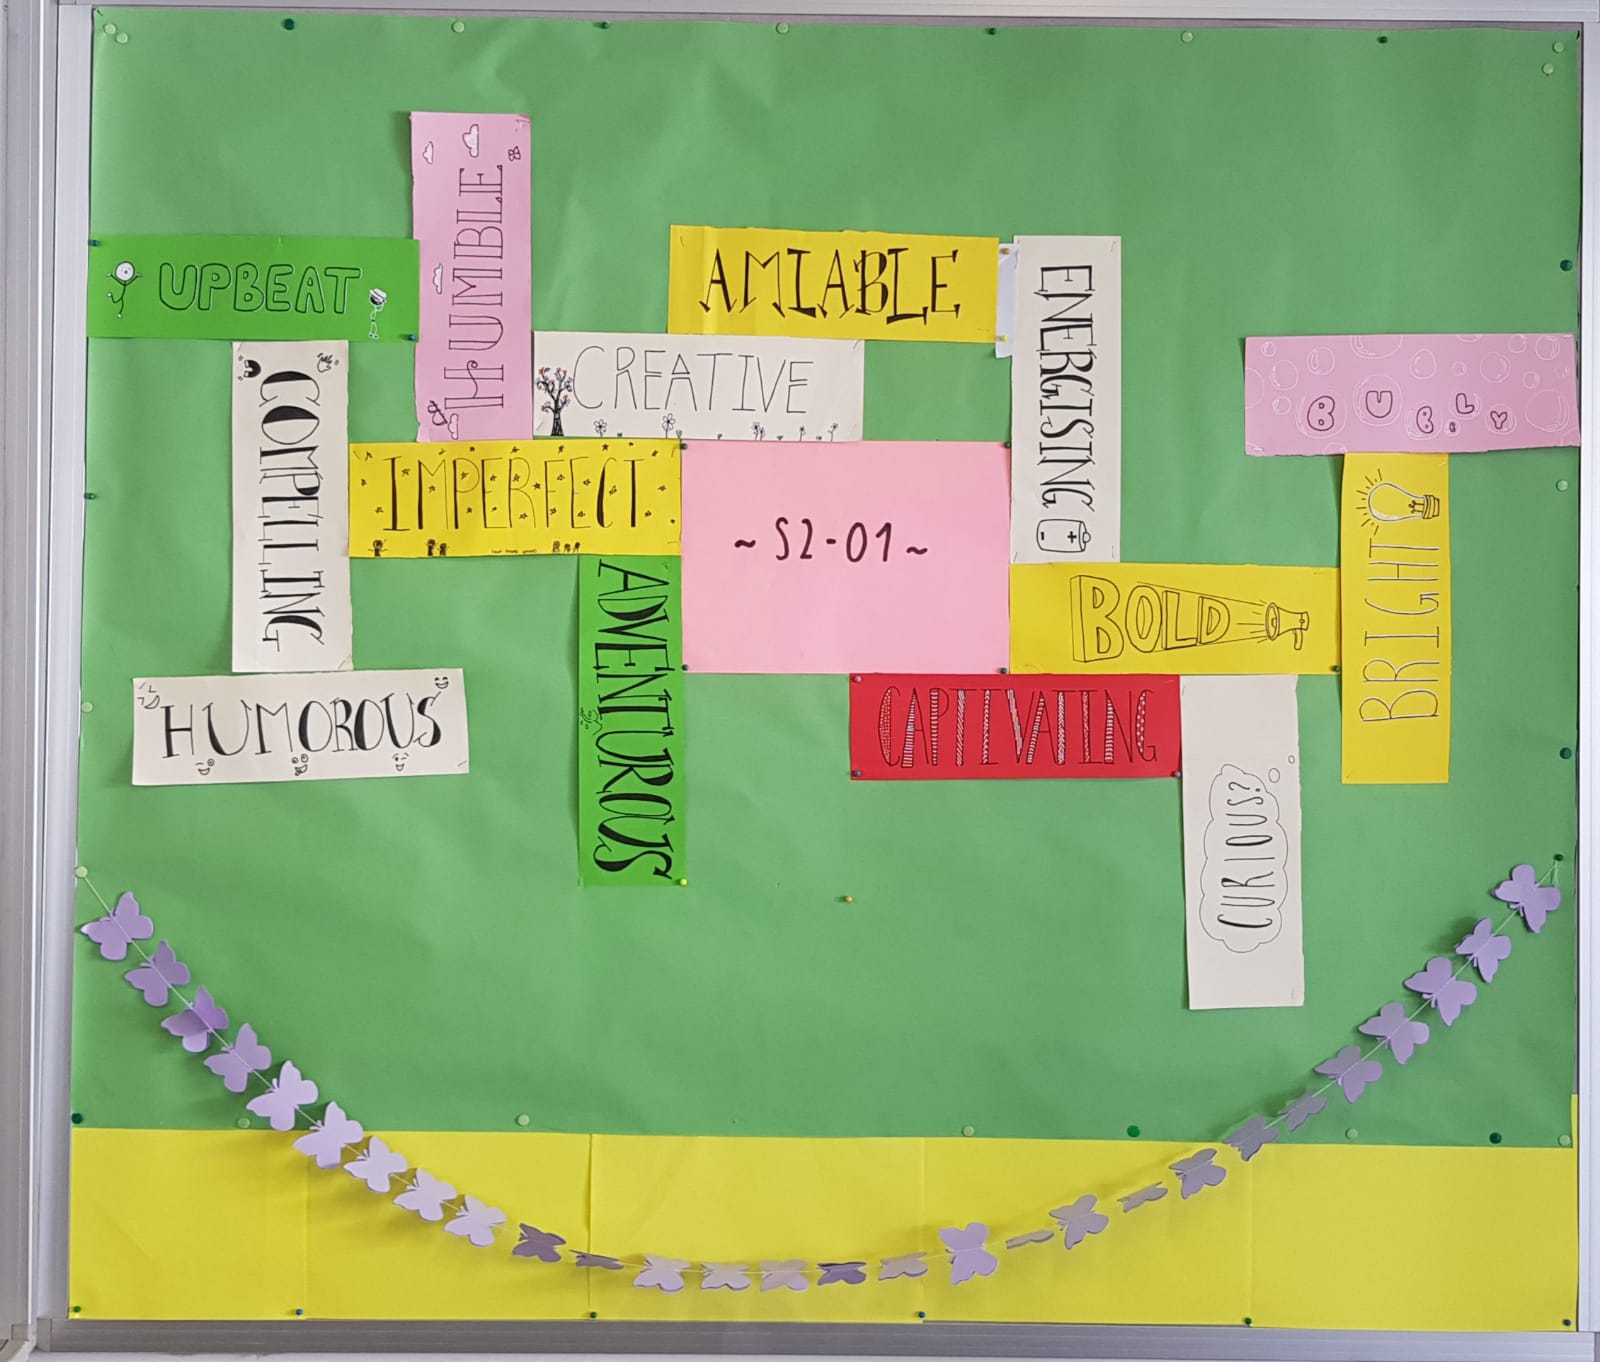 HUMBLE
UPBEAT
AMIABLE
ENERGISING
CREATIVE
BUBLY
COMPELLING
IMPERFECT
~S2-01~
BRIGHT
ADVENTUROUS
BOLD
HUMOROUS
CAPTIVATING
CURIOUS?